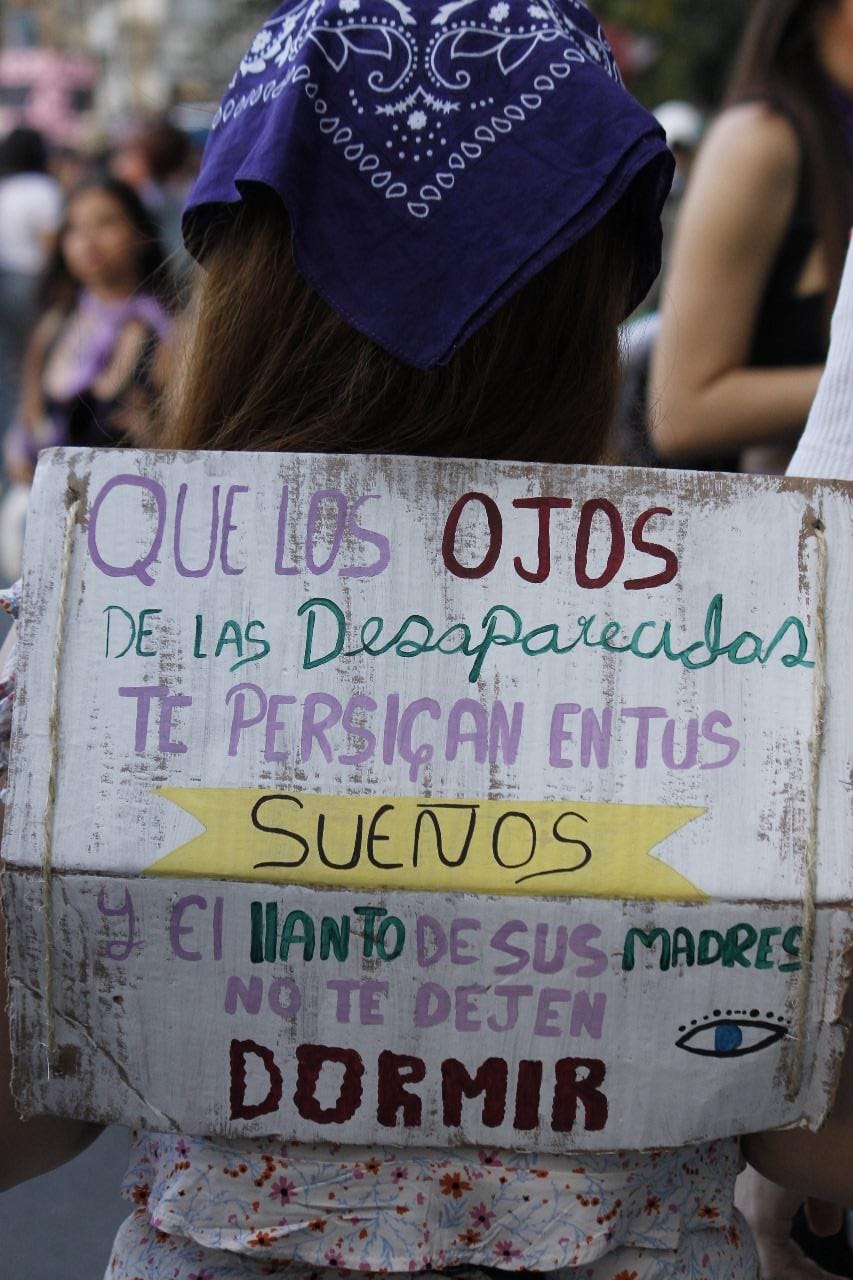 QUE LOS OJOS
DE LAS Desaparecidas
TE PERSIGAN EN TUS
SUEÑOS
Y El llANTO DE SUS MADRES
NO TE DEJEN
DORMIR